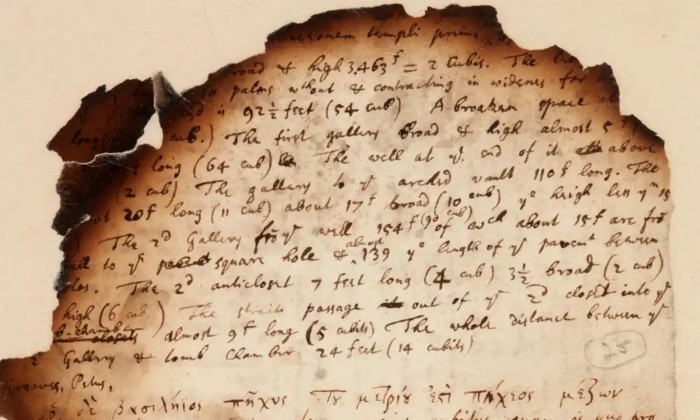 templi primi
road & high 3,463f = 2 Cubits. The
palms without & contracting in widenes for
is 92 1/2 feet (54 cub) A broaken space
cub.) The first gallery broad & high almost 5
long (64 cub) The well at ye end of it above
(2 cub) The gallery to ye arched vault 110f long. The
20f long (11 cub) about 17f broad (10 cub) ye heigh less yn 15
The 2d Gallery fro ye well 154f (90 cub) of wch about 15f are fro
to ye square hole & almost 139 ye length of ye pavemt between
The 2d anticloset 7 feet long (4 cub) 3 1/2 broad (2 cub)
high (6 cub) The strait passage out of ye 2d closet into ye
almost 9f long (5 cubits) The whole distance between ye
Gallery & tomb chamber 24 feet (14 cubits)
25
Greaves, Petus,
δὲ βασιλήιος πῆχυς τοῦ μετρίου ἐστὶ πήχεος μέζων